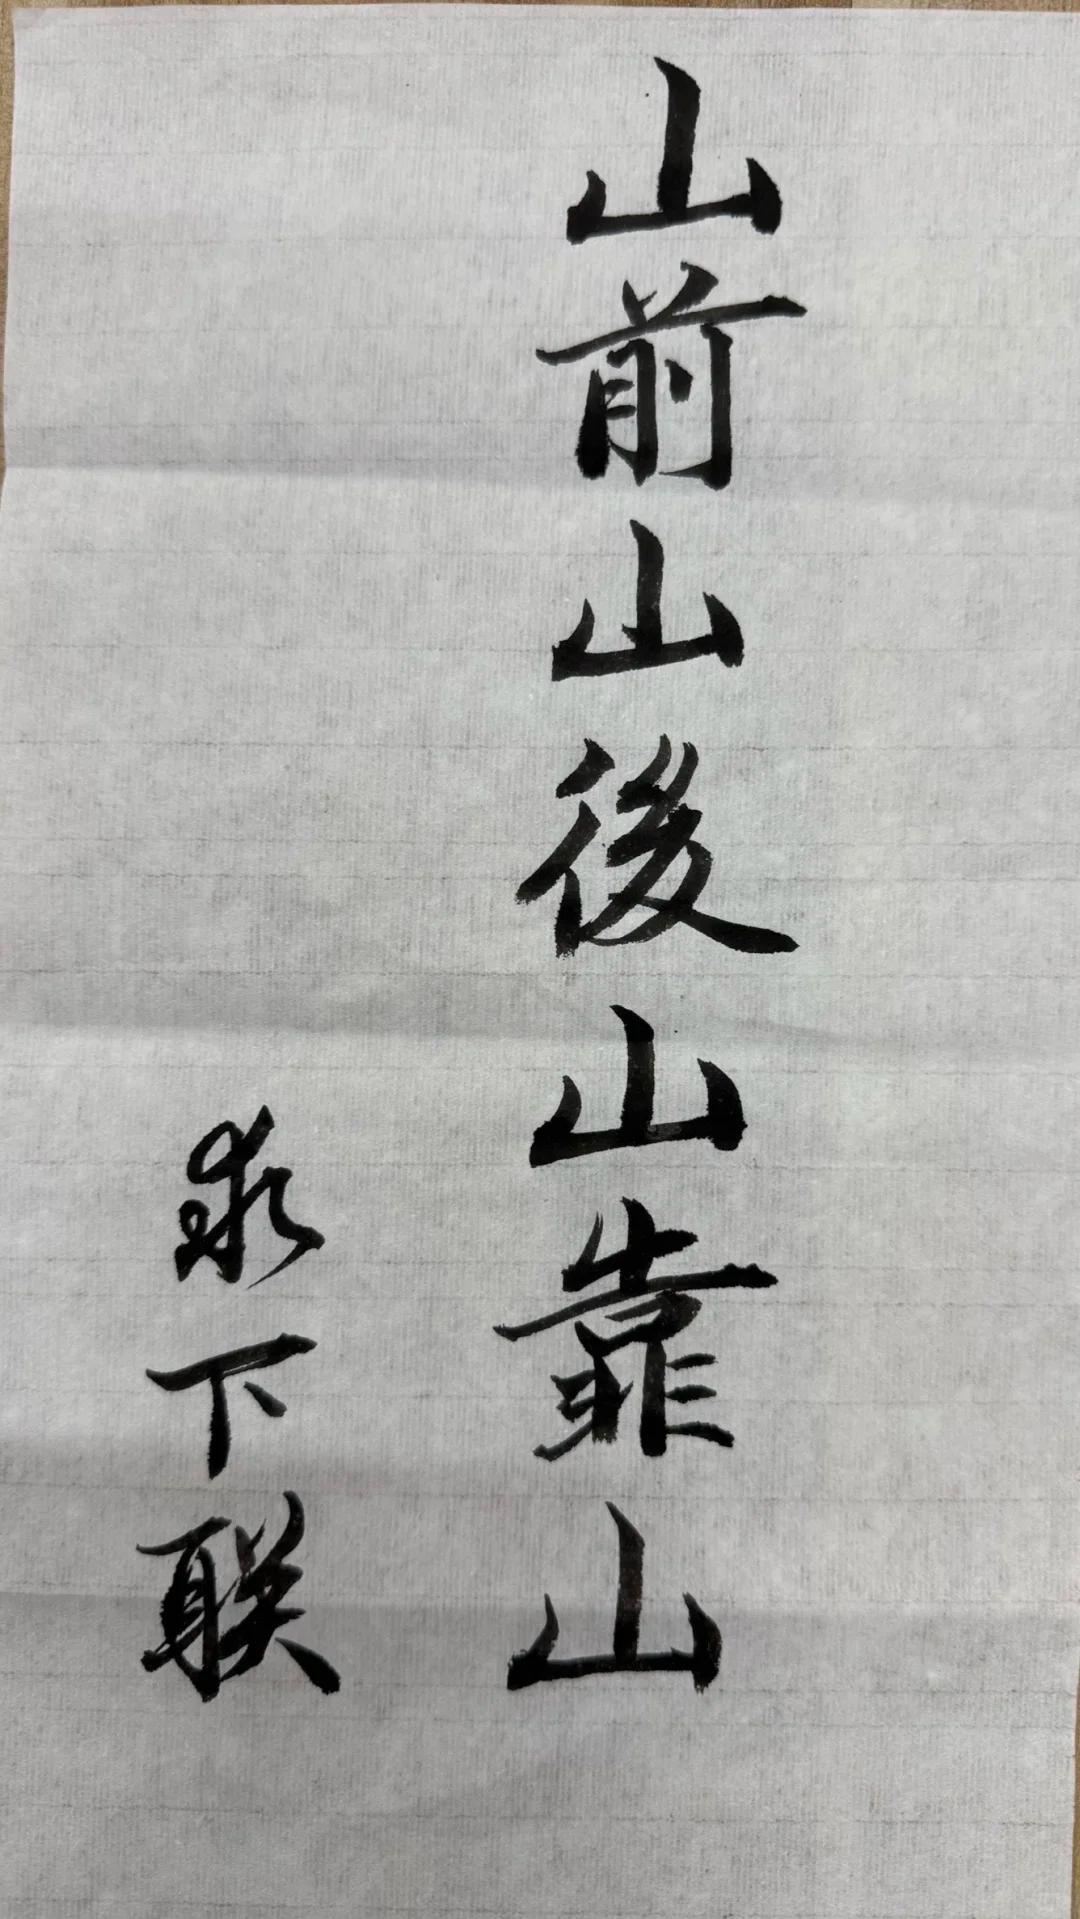 山前山後山靠山
求下联